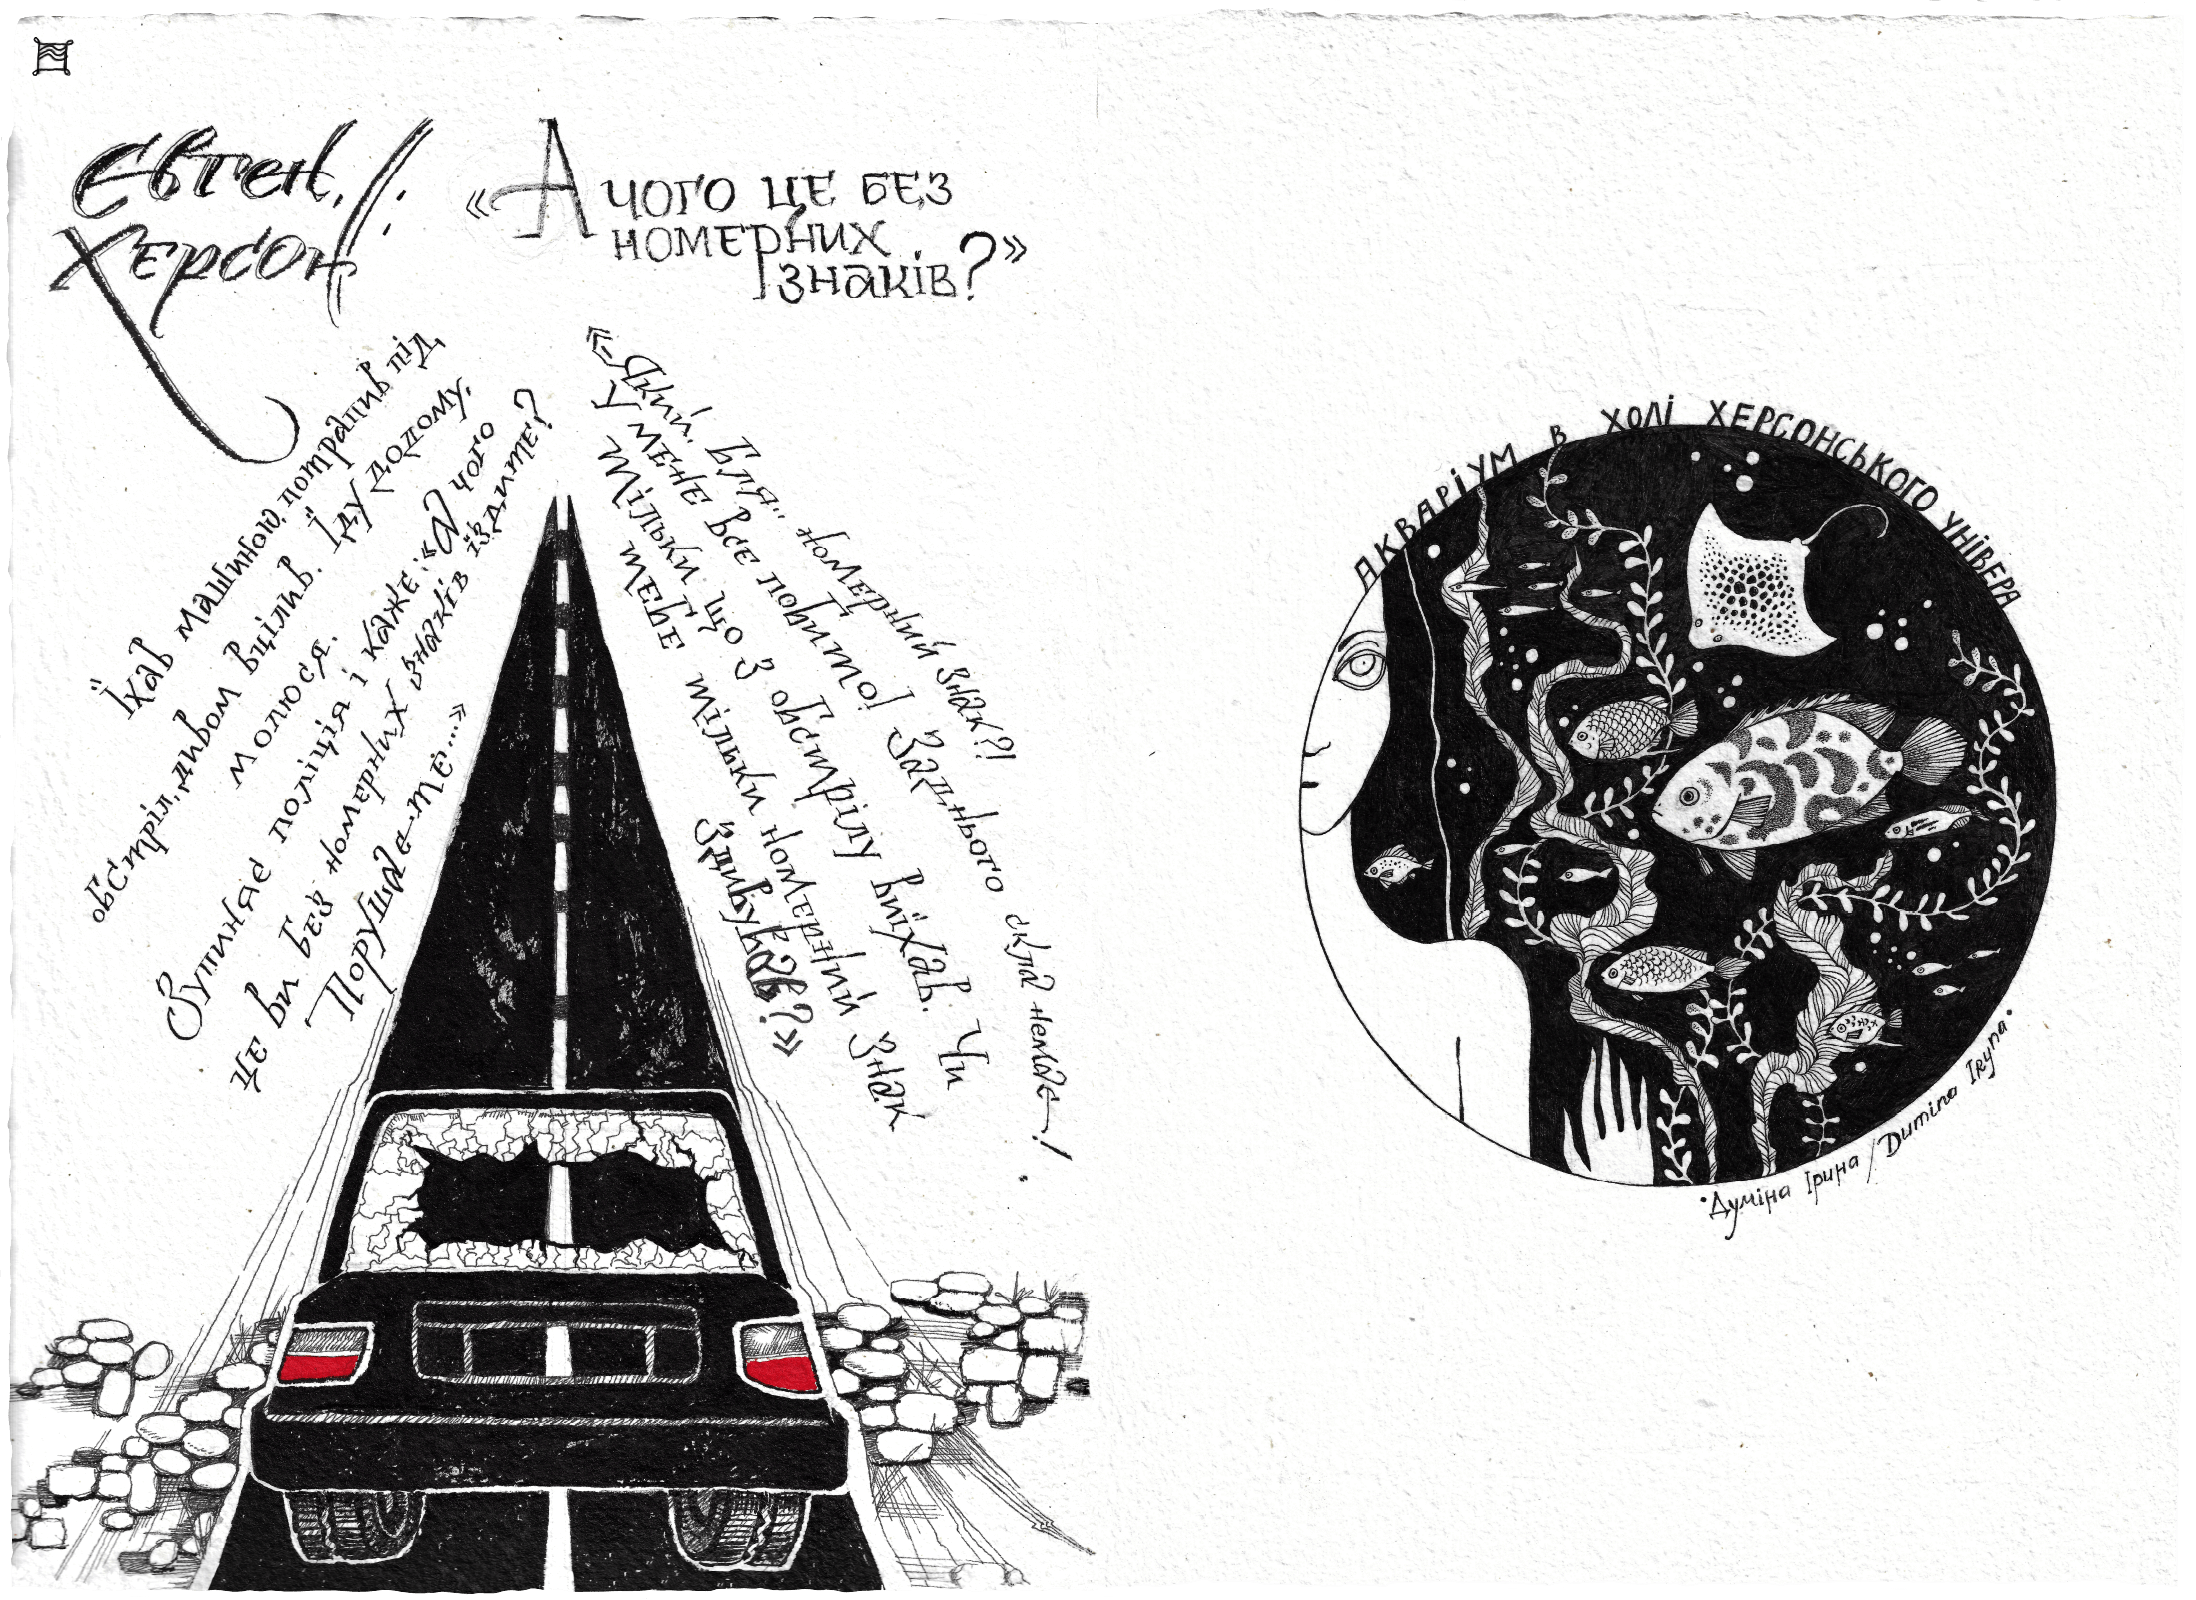 Євген,
Херсон//:
«А чого це без
номерних
знаків?»
Їхав машиною, потрапив під
обстріл, дивом вцілив. Їду додому,
молюся.
Зупиняє поліція і каже: «А чого
це ви без номерних знаків їздите?
Порушаєте...»
«-Який, бля.. номерний знак?!
У мене все побито! Заднього скла немає!
Тільки що з обстрілу виїхав. Чи
тебе тільки номерний знак
здивував?»
АКВАРІУМ В ХОЛІ ХЕРСОНСЬКОГО УНІВЕРА
•Думіна Ірина / Dumina Iryna•